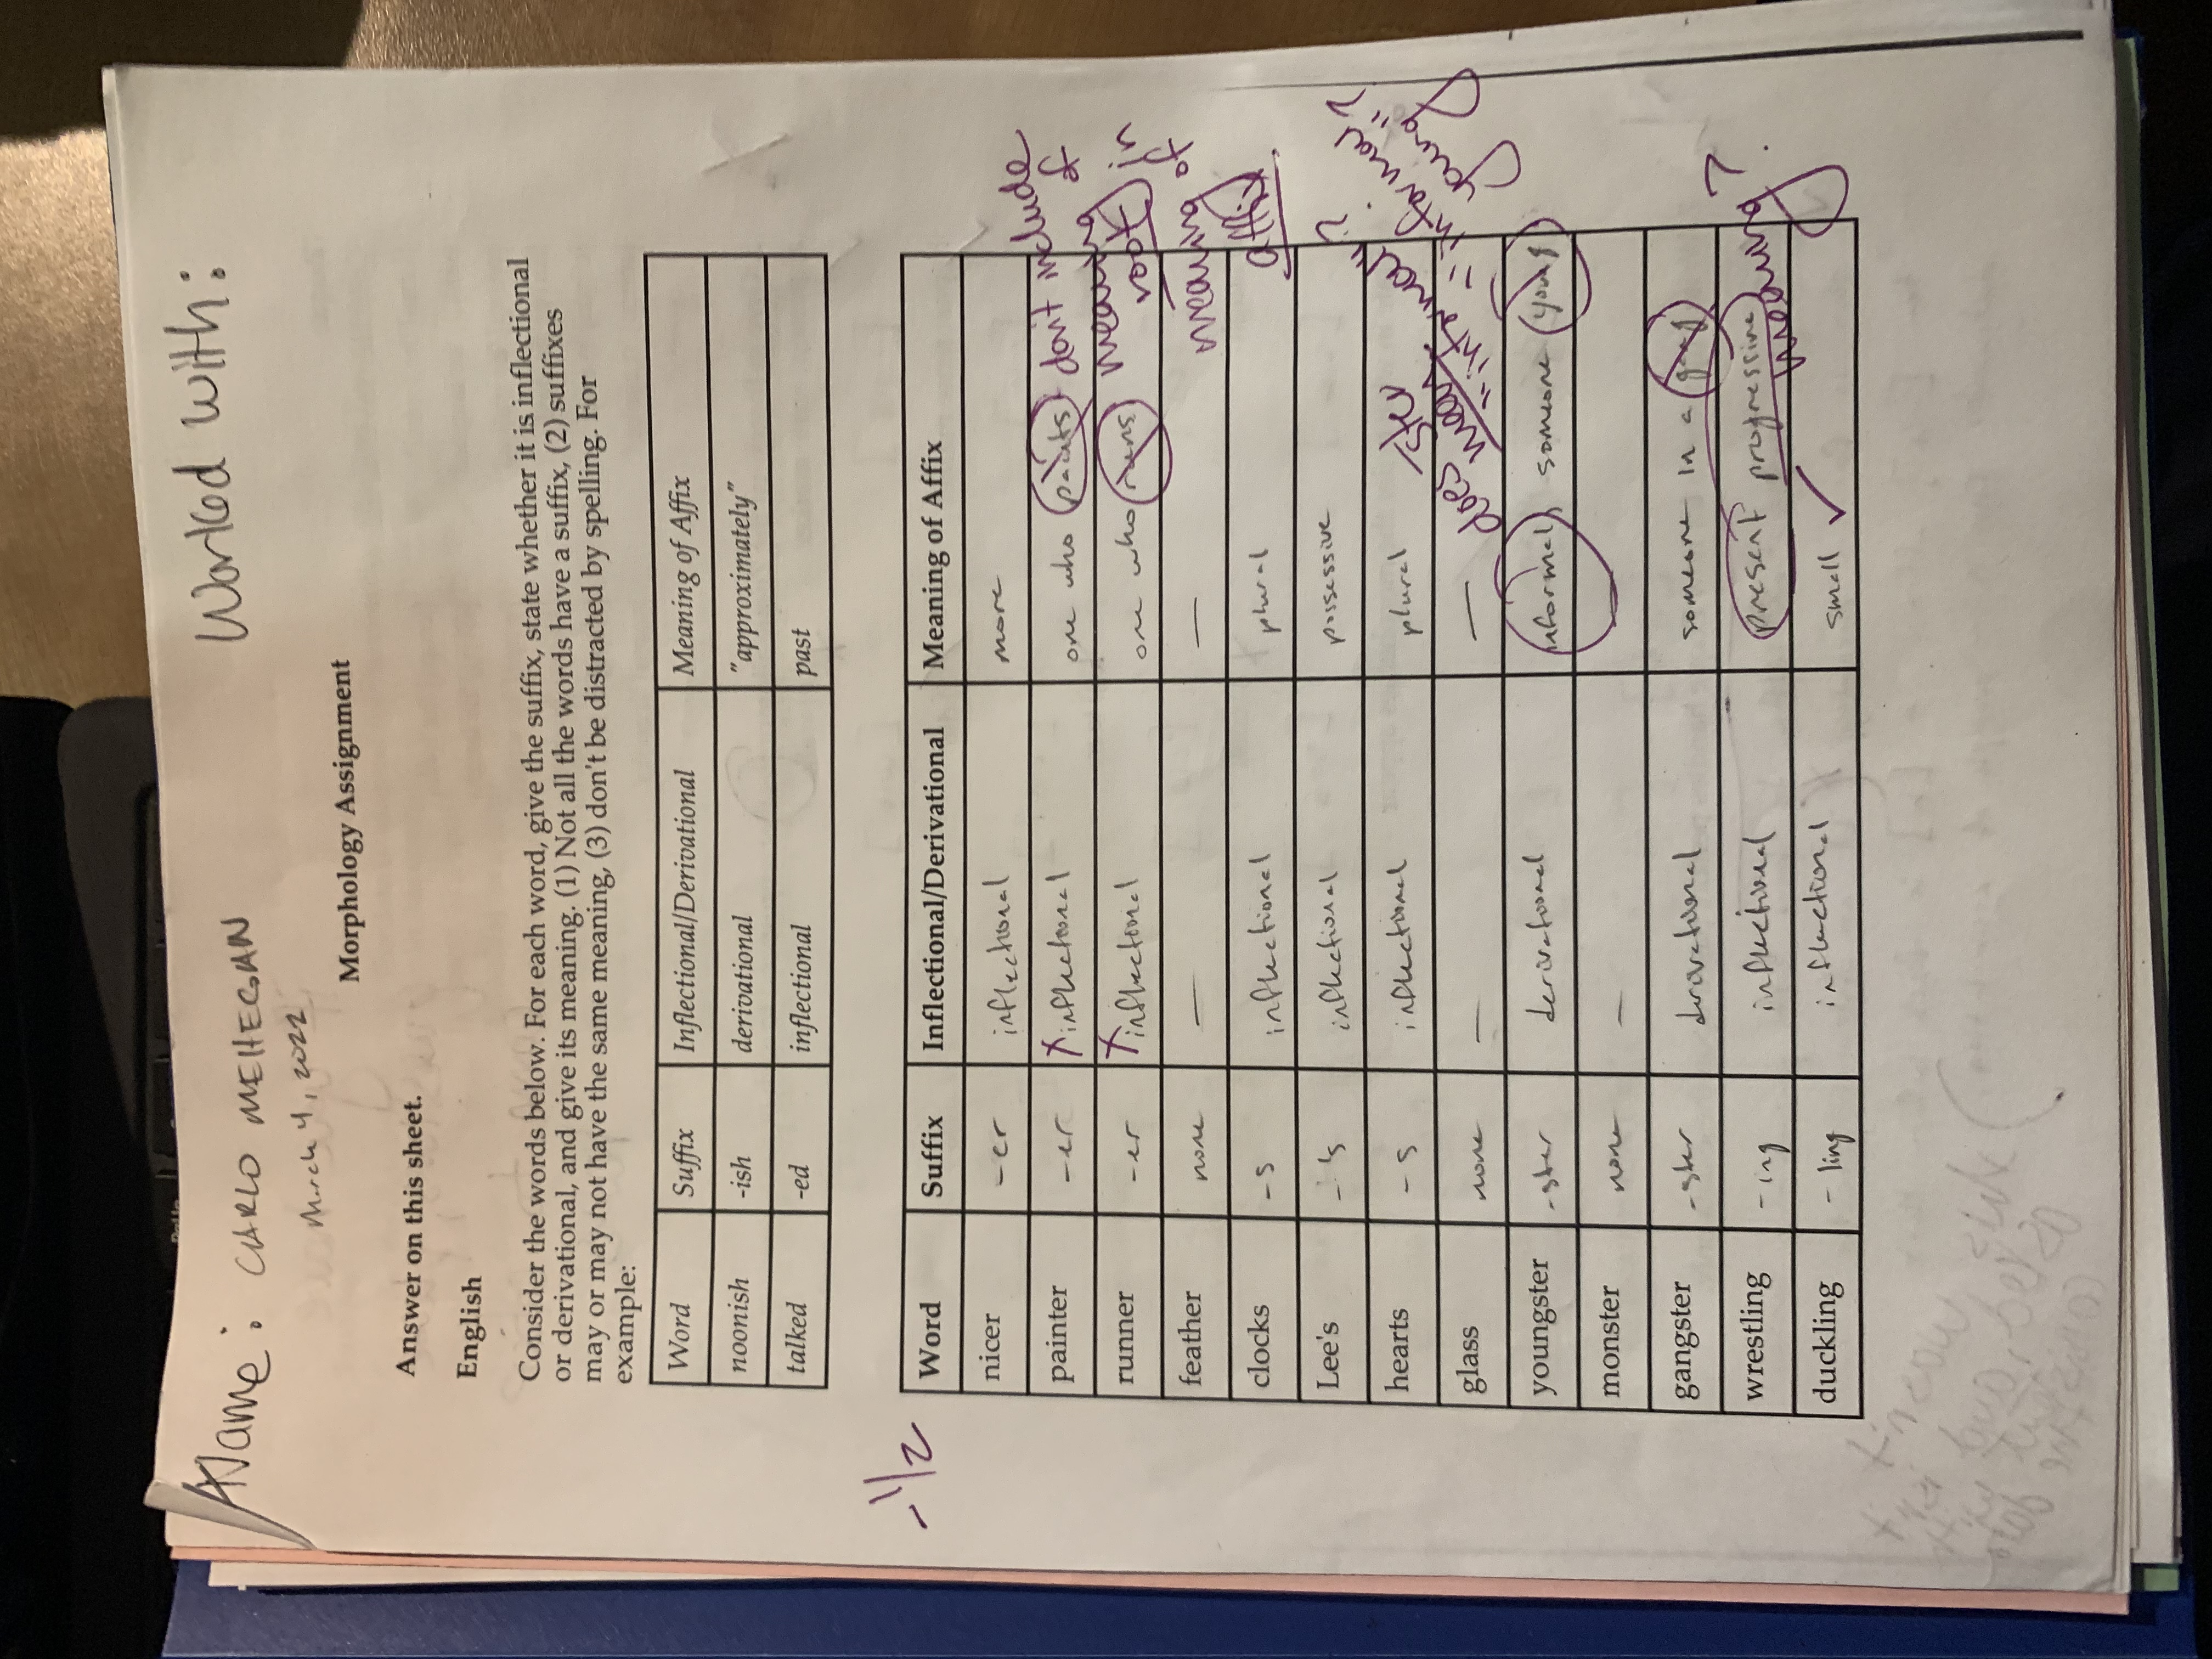 Name: CARLO MEHEGAN
Worked with:
March 4, 2022
Morphology Assignment
Answer on this sheet.
English
Consider the words below. For each word, give the suffix, state whether it is inflectional
or derivational, and give its meaning. (1) Not all the words have a suffix, (2) suffixes
may or may not have the same meaning, (3) don't be distracted by spelling. For
example:
Word Suffix Inflectional/Derivational Meaning of Affix
noonish -ish derivational "approximately"
talked -ed inflectional past
-1/2
Word Suffix Inflectional/Derivational Meaning of Affix
nicer -er inflectional more
painter -er x inflectional one who paints
runner -er x inflectional one who runs
don't include
meaning of
root in
meaning of
affix
feather none — —
clocks -s inflectional plural
Lee's -'s inflectional possessive
hearts -s inflectional plural
glass none — —
does -ster
mean
"informal"?
"informal
young"?
youngster -ster derivational informal, someone young
monster none — —
gangster -ster derivational someone in a gang
wrestling -ing inflectional present progressive
meaning?
duckling -ling inflectional small ✓